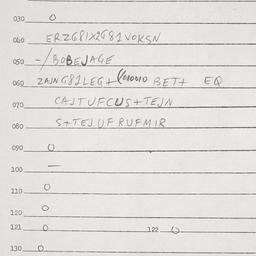 030 O
040 ERZG81X2G81VOKSN
050 -/BOBEJAGE
060 ZAJNG81LEG+ BET+ EQ
070 CAJTUFCUS+TEJN
080 S+TEJUFRUFMIR
090 O
100 —
110 O
120 O
121 O 122 O
130 O